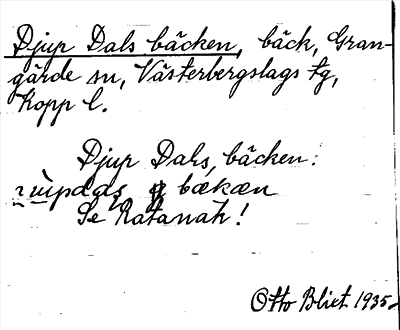 Djup Dals bäcken, bäck, Gran-
gärde sn, Västerbergslags tg,
Kopp l.
Djup Dals, bäcken:
bäkæn
Se Ratanah!
Otto Blixt 1935.